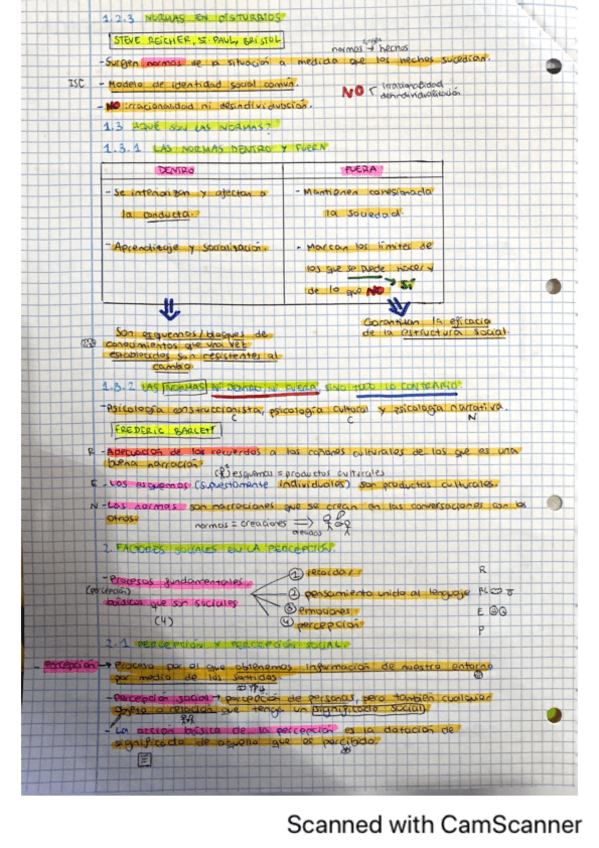 1.2.3 NORMAS EN DISTURBIOS
STEVE REICHER, ST. PAUL, BRISTOL
normas → hechos
- Surgen normas de la situación a medida que los hechos sucedían.
ISC - Modelo de identidad social común.
NO irracionalidad
desindividualización
- NO irracionalidad ni desindividuación.
1.3 ¿QUÉ SON LAS NORMAS?
1.3.1 LAS NORMAS DENTRO Y FUERA
DENTRO FUERA
- Se interiorizan y afectan a - Mantienen cohesionada
la conducta. la sociedad.
- Aprendizaje y socialización. - Marcan los límites de
los que se puede hacer y
de lo que NO SÍ
Son esquemas/bloques de Garantizan la eficacia
conocimientos que una vez de la estructura social.
establecidos son resistentes al
cambio
1.3.2 LAS NORMAS NI DENTRO, NI FUERA, SINO TODO LO CONTRARIO
- Psicología construccionista, psicología cultural y psicología narrativa.
C C N
FREDERIC BARLETT
R - Adecuación de los recuerdos a los cánones culturales de los que es una
buena narración
esquemas = productos culturales
E - Los esquemas (supuestamente individuales) son productos culturales.
N - Las normas son narraciones que se crean en las conversaciones con los
otros.
normas = creaciones
2. FACTORES SOCIALES EN LA PERCEPCIÓN
- Procesos fundamentales
(percepción)
básicos que son sociales
(4)
1 recordar R
2 pensamiento unido al lenguaje
3 emociones E
4 percepción P
2.1 PERCEPCIÓN Y PERCEPCIÓN SOCIAL
- Percepción → Proceso por el que obtenemos información de nuestro entorno
por medio de los sentidos.
- Percepción social → percepción de personas, pero también cualquier
objeto o relación que tenga un significado social
- La acción básica de la percepción es la dotación de
significado de aquello que es percibido.
Scanned with CamScanner